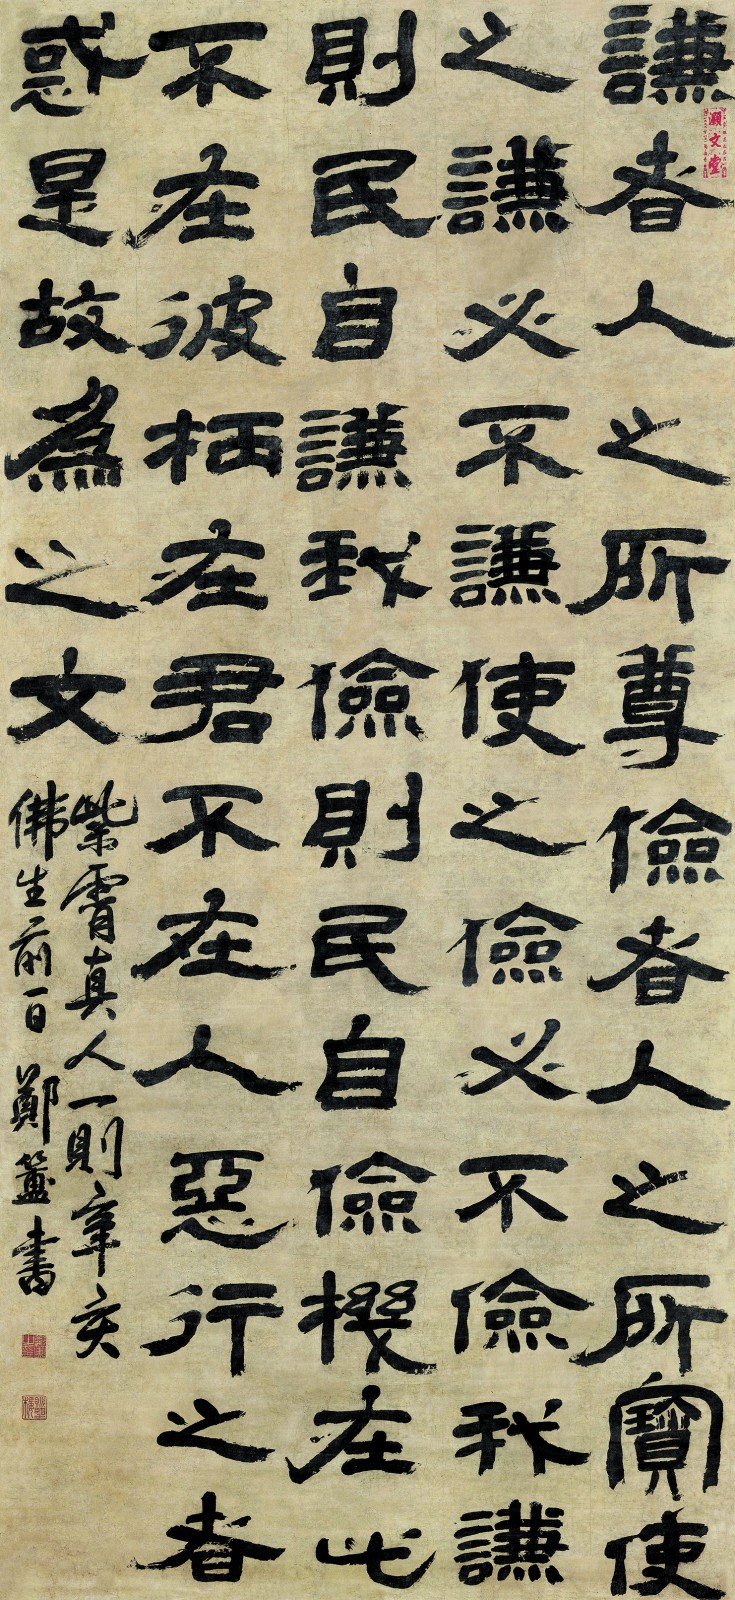 謙者人之所尊儉者人之所寶使
之謙必不謙使之儉必不儉我謙
則民自謙我儉則民自儉機在此
不在彼柄在君不在人惡行之者
惑是故為之文
紫霄真人一則辛亥
佛生前一日鄭簠書
灝文堂